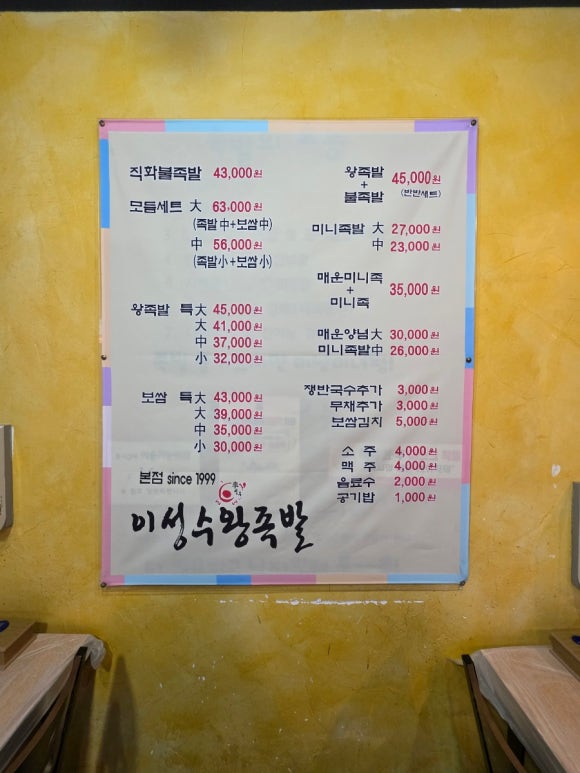 직화불족발 43,000원
모듬세트 大 63,000원
(족발中+보쌈中)
中 56,000원
(족발小+보쌈小)
왕족발 특大 45,000원
大 41,000원
中 37,000원
小 32,000원
보쌈 특大 43,000원
大 39,000원
中 35,000원
小 30,000원
본점 since 1999
이성수왕족발
왕족발
+
불족발
45,000원
(반반세트)
미니족발 大 27,000원
中 23,000원
매운미니족
+
미니족
35,000원
매운양념大 30,000원
미니족발中 26,000원
쟁반국수추가 3,000원
무채추가 3,000원
보쌈김치 5,000원
소주 4,000원
맥주 4,000원
음료수 2,000원
공기밥 1,000원